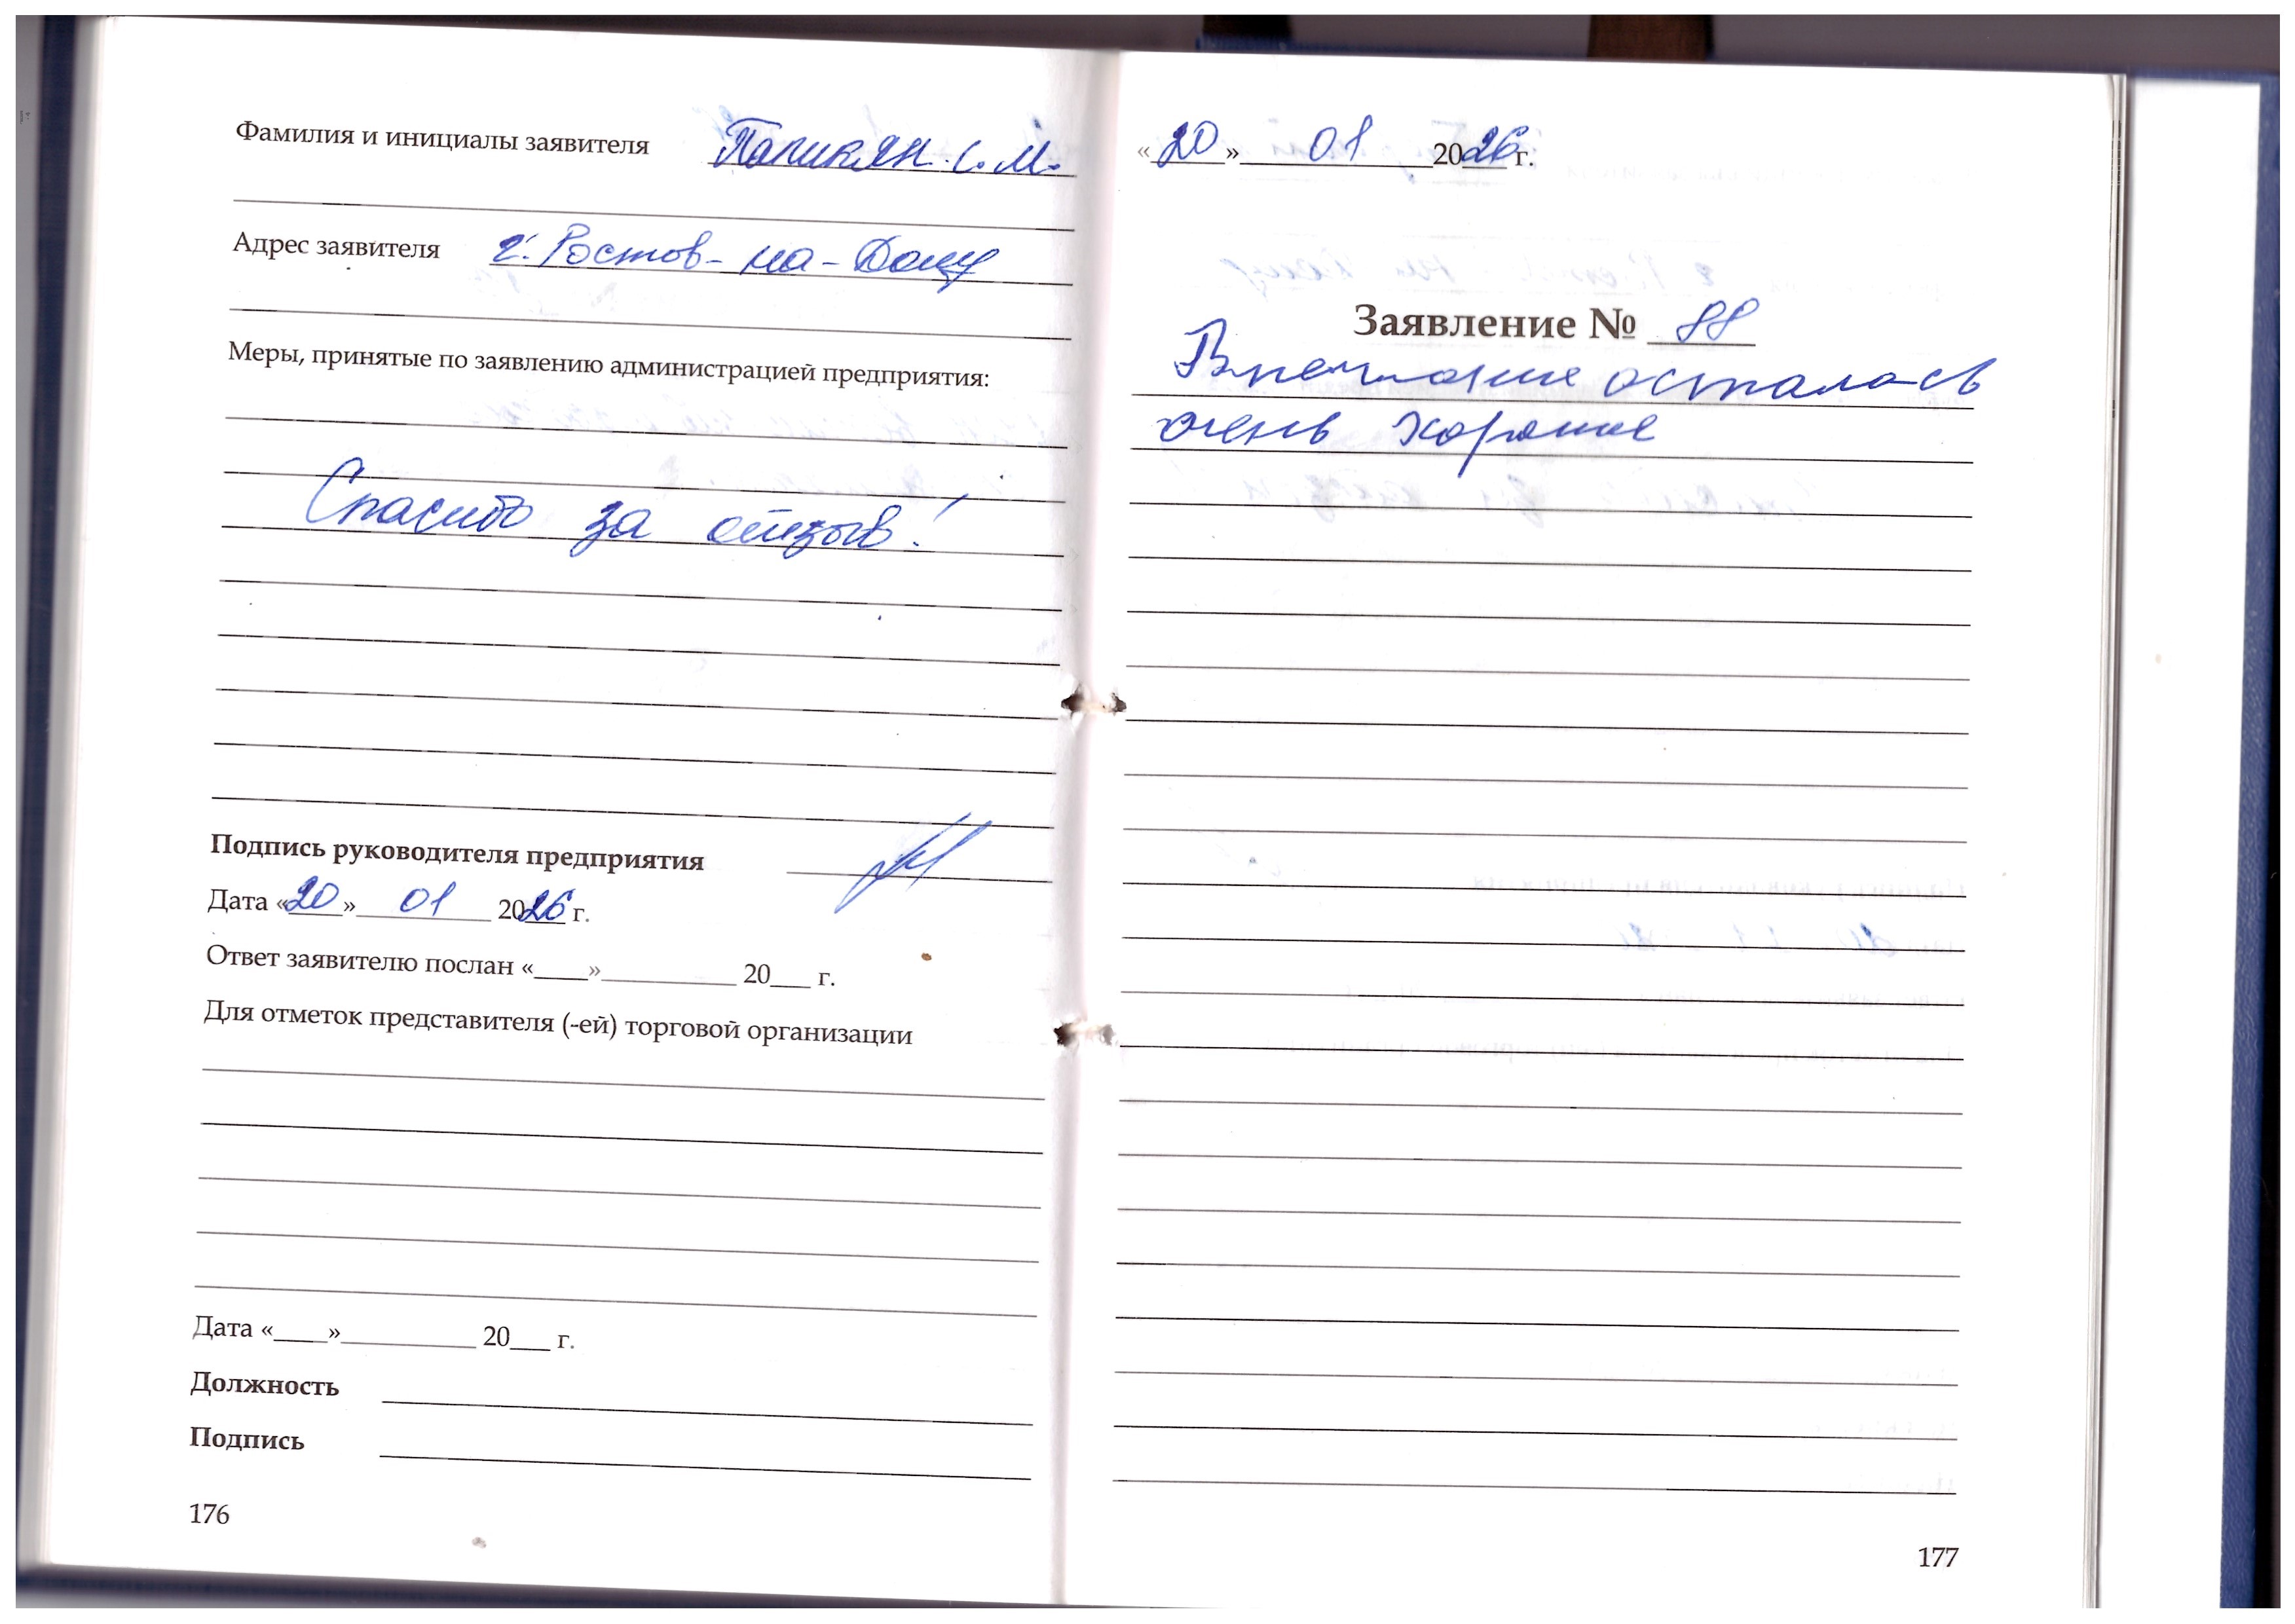 Фамилия и инициалы заявителя Папикян С.М.
Адрес заявителя г. Ростов-на-Дону
Меры, принятые по заявлению администрацией предприятия:
Спасибо за отзыв!
Подпись руководителя предприятия
Дата «20» 01 2026 г.
Ответ заявителю послан «____»__________ 20___ г.
Для отметок представителя (-ей) торговой организации
Дата «____»__________ 20___ г.
Должность
Подпись
176
«20» 01 2026 г.
Заявление № 88
осталась
очень хорошие
177